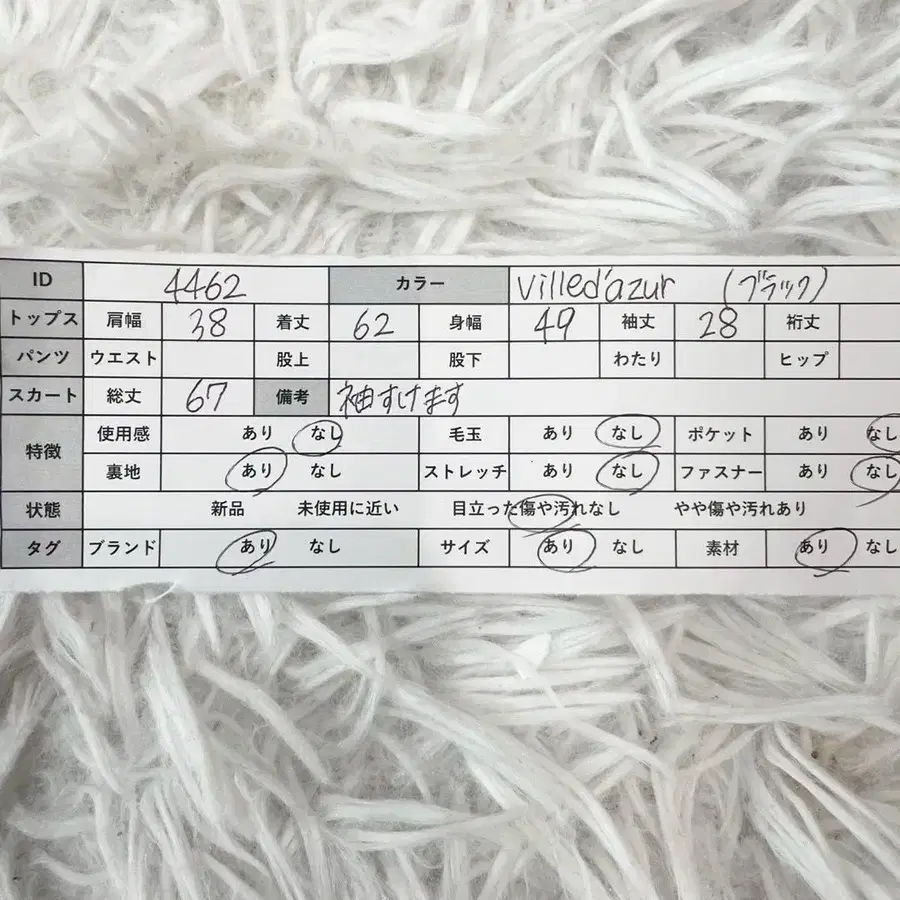 ID 4462 カラー villed'azur (ブラック)
トップス 肩幅 38 着丈 62 身幅 49 袖丈 28 裄丈
パンツ ウエスト 股上 股下 わたり ヒップ
スカート 総丈 67 備考 袖すけます
特徴 使用感 あり なし 毛玉 あり なし ポケット あり なし
裏地 あり なし ストレッチ あり なし ファスナー あり なし
状態 新品 未使用に近い 目立った傷や汚れなし やや傷や汚れあり
タグ ブランド あり なし サイズ あり なし 素材 あり なし